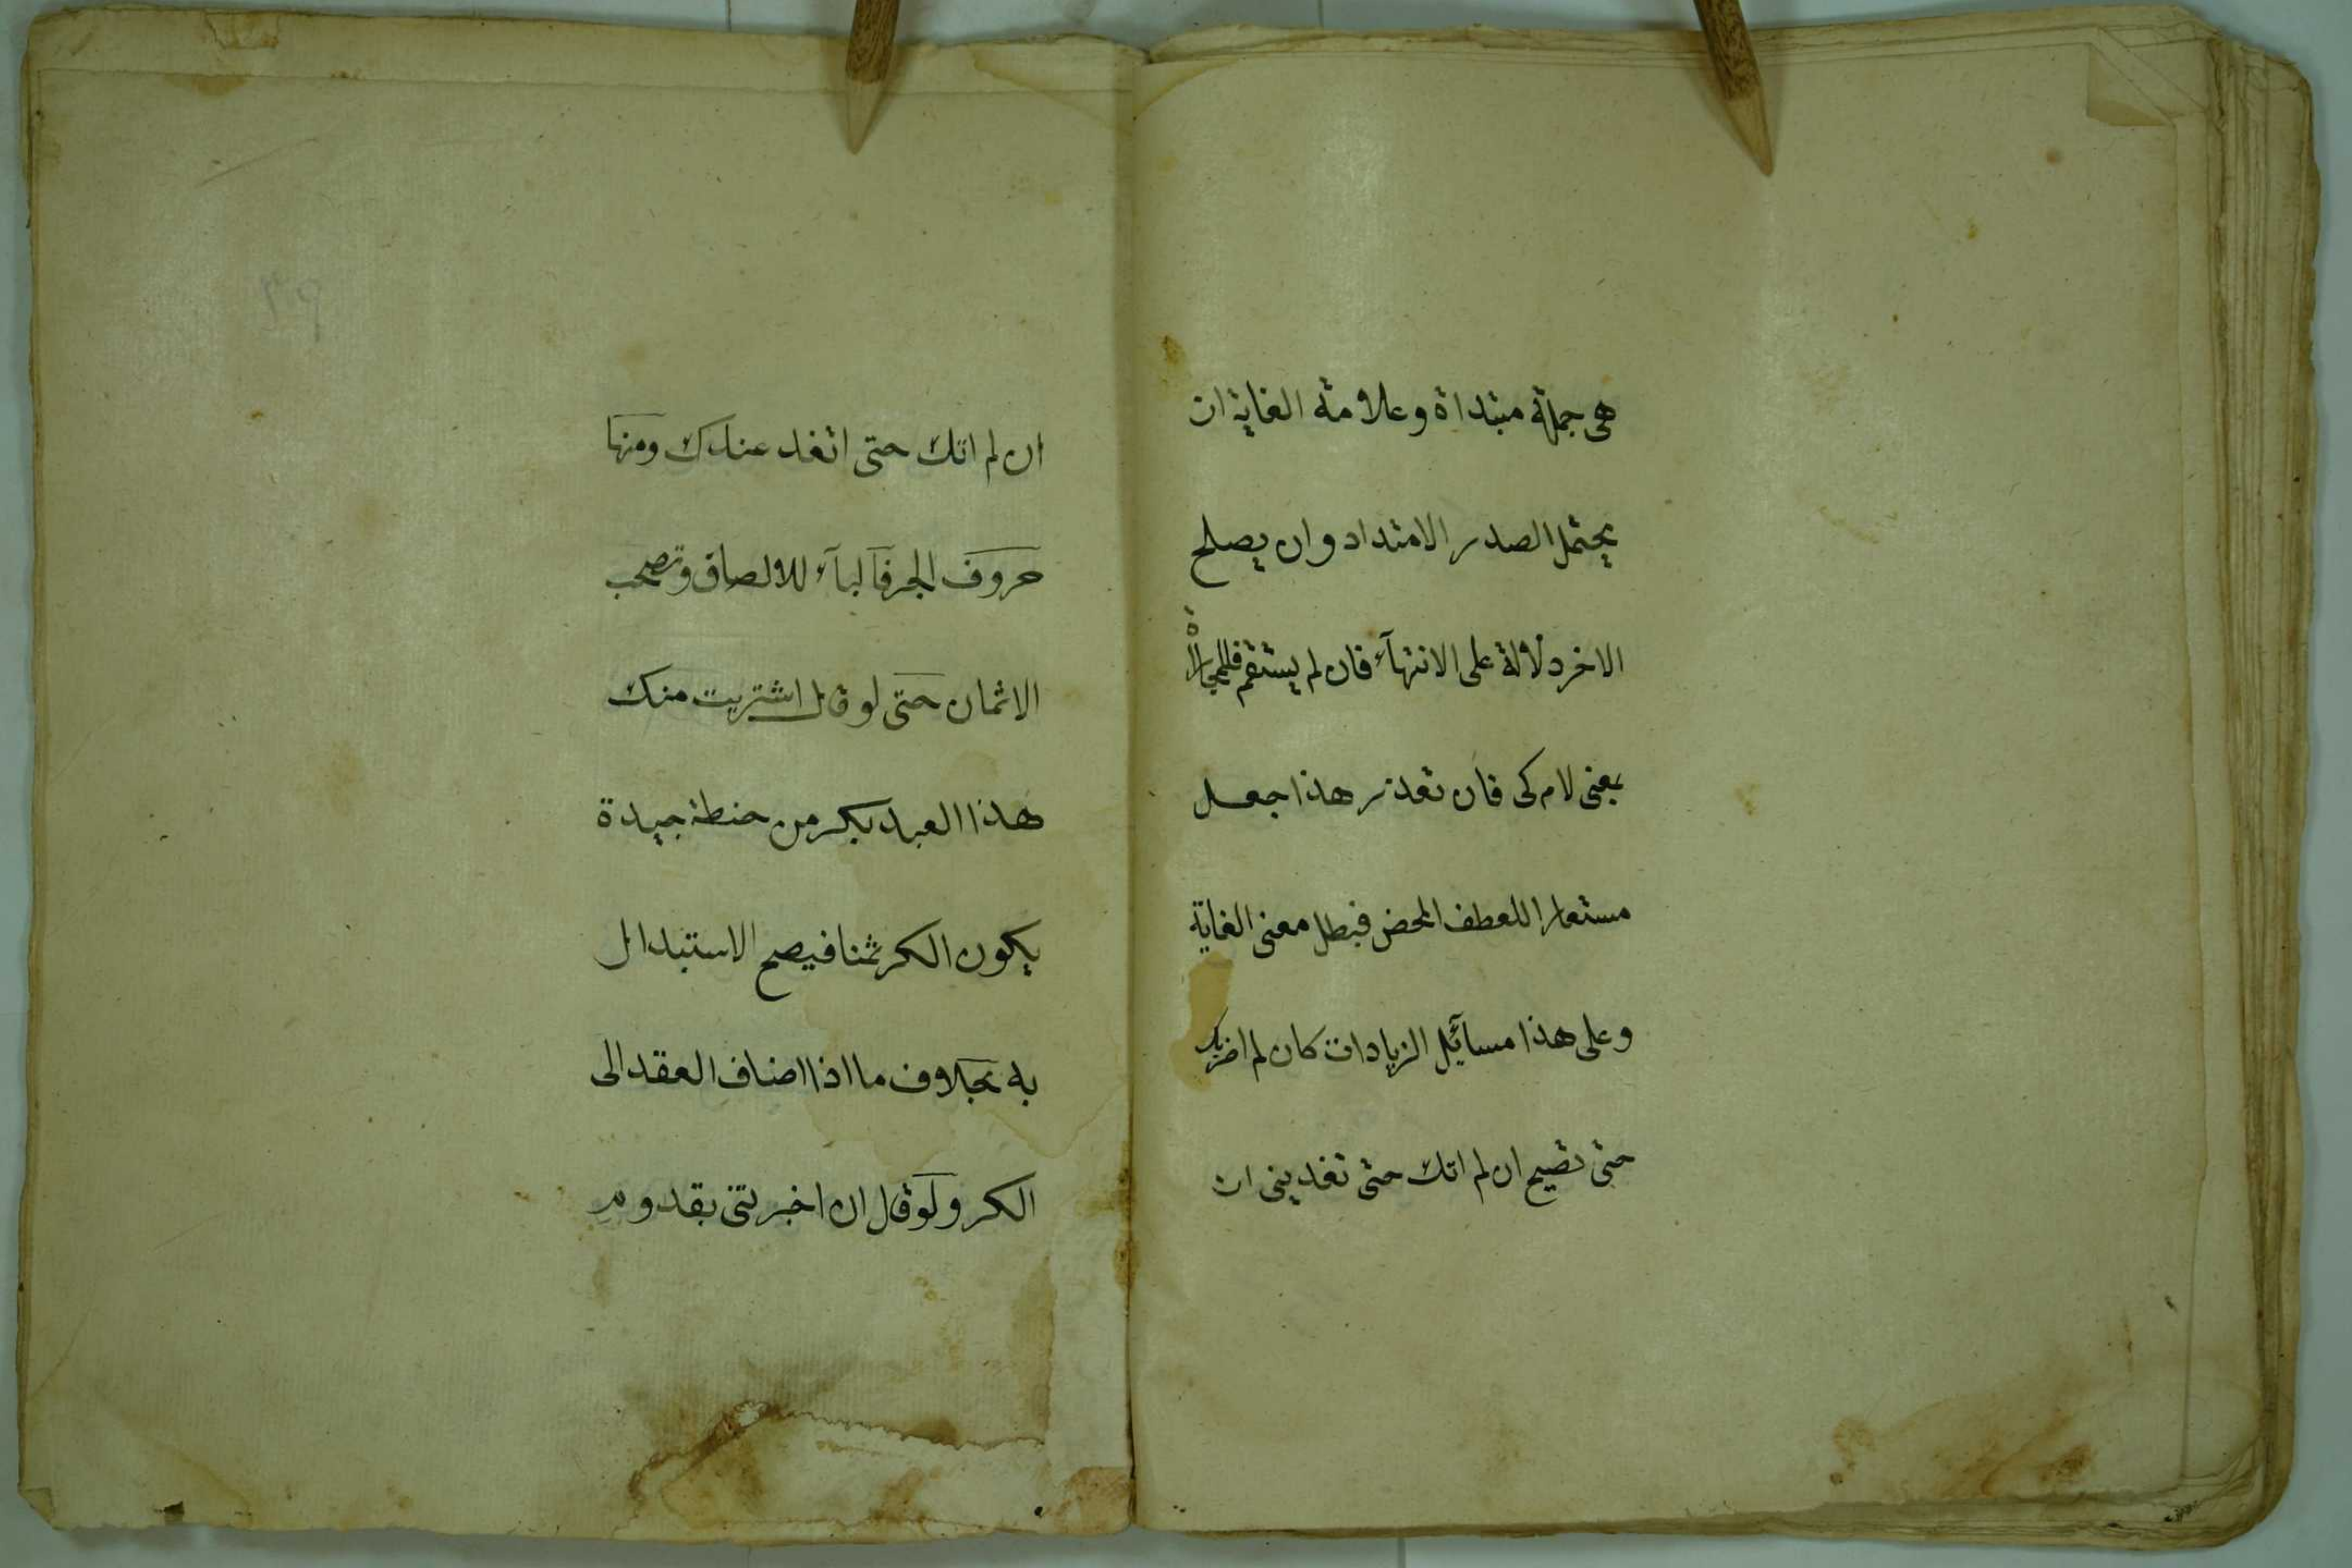 هى جملة مبتداة وعلامة الغاية ان
يحتمل الصدر الامتداد وان يصلح
الاخر دلالة على الانتهآء فان لم يستقم فللمجازاة
بمعنى لام كى فان تعذر هذا جعل
مستعارا للعطف المحض فبطل معنى الغاية
وعلى هذا مسآئل الزيادات كان لم اضربك
حتى تصيح ان لم اتك حتى تغدينى ان
ان لم اتك حتى اتغد عندك ومنها
حروف الجر فالبآء للالصاق وتصحب
الاثمان حتى لو قال اشتريت منك
هذا العبد بكر من حنطة جيدة
يكون الكر ثمنا فيصح الاستبدال
به بخلاف ما اذا اضاف العقد الى
الكر ولو قال ان اخبرتنى بقدوم